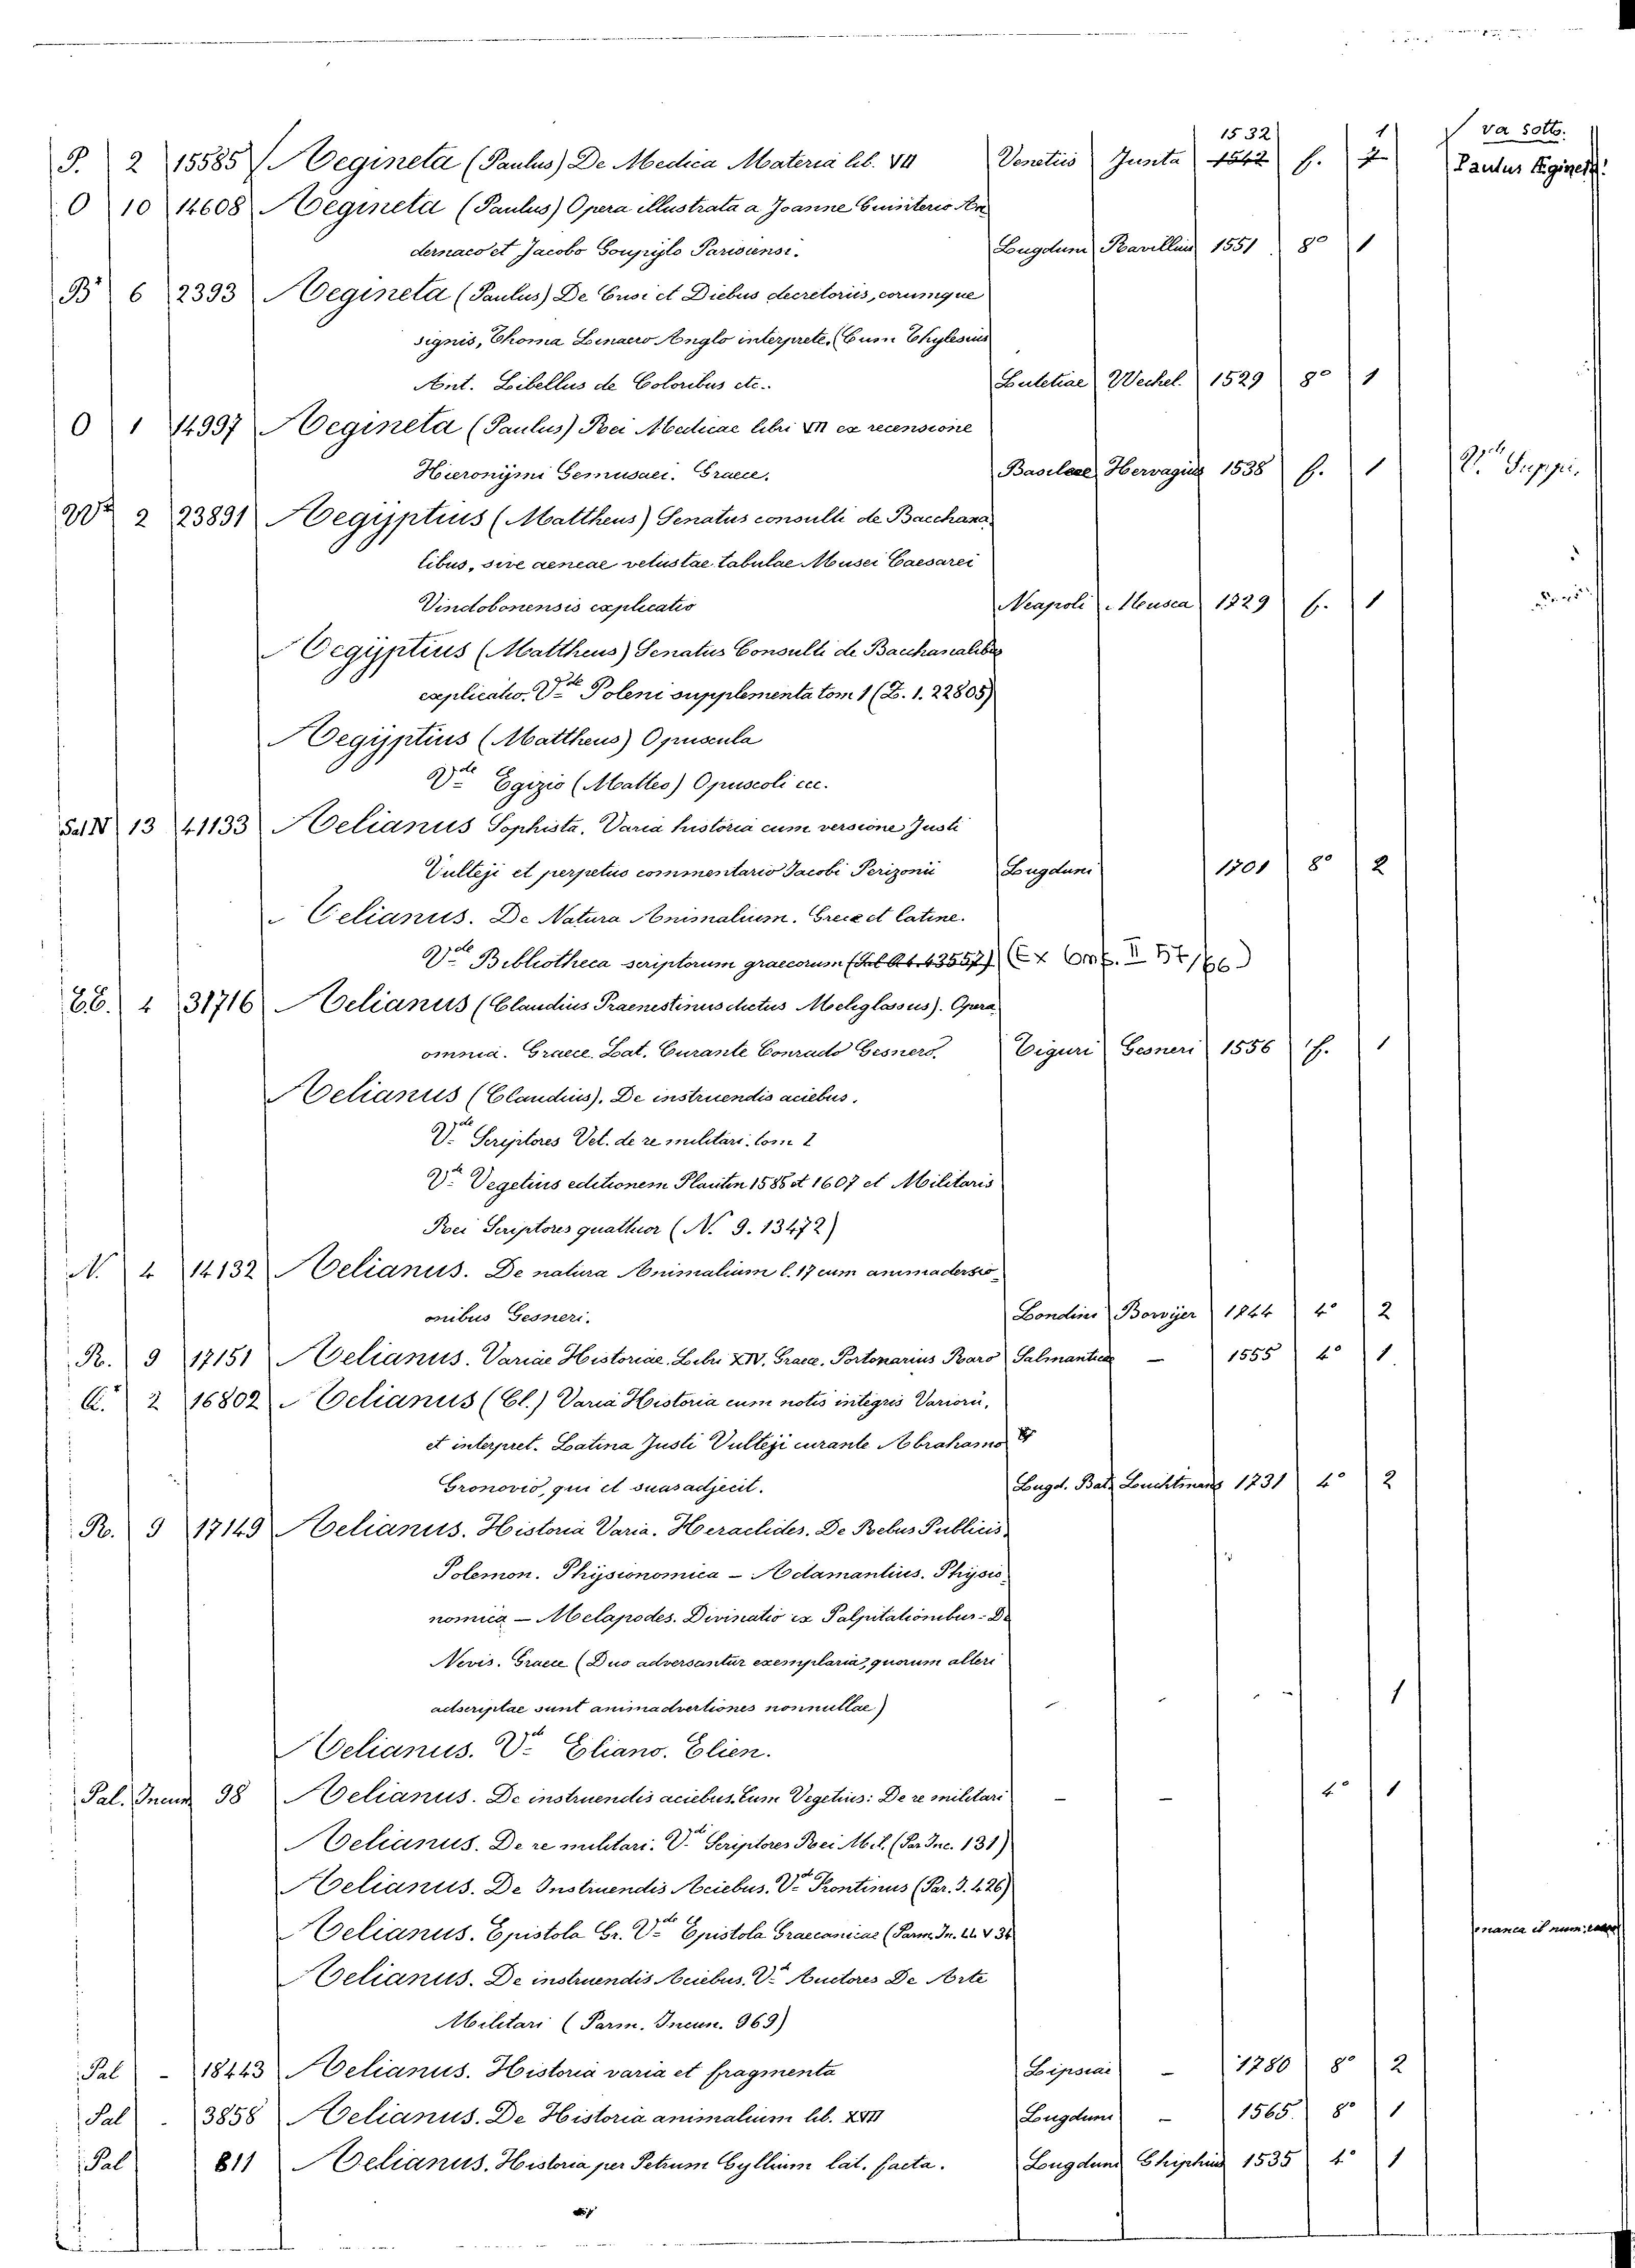 1532 1 va sotto.
P. 2 15585 Aegineta (Paulus) De Medica Materia lib. VII Venetiis Junta 1542 f. Paulus Eginet.
O 10 14608 Aegineta (Paulus) Opera illustrata a Joanne Guinterio An
dernaco et Jacobo Goupylo Parisiensi. Lugduni Rovillius 1551 8º 1
B 6 2393 Aegineta (Paulus) De Crisi et Diebus decretoriis, eorumque
signis, Thoma Linacro Anglo interprete. (Cum Thylesius
Ant. Libellus de Coloribus etc. Lutetiae Wechel. 1529 8º 1
O 1 14997 Aegineta (Paulus) Rei Medicae libri VII ex recensione
Hieronymi Gemusaei. Graece. Basileae Hervagius 1538 f. 1 Vde Suppi.
2 23891 Aegyptius (Mattheus) Senatus consulti de Bacchana
libus, sive aeneae vetustae tabulae Musei Caesarei
Vindobonensis explicatio Neapoli Mosca 1729 f. 1
Aegyptius (Mattheus) Senatus Consulti de Bacchanalibus
explicatio. Vde Poleni supplementa tom 1 (Z. 1. 22805)
Aegyptius (Mattheus) Opuscula
Vde Egizio (Matteo) Opuscoli ecc.
Sal N 13 41133 Aelianus Sophista. Varia historia cum versione Justi
Vulteji et perpetuo commentario Jacobi Perizonii Lugduni 1701 8º 2
Aelianus. De Natura Animalium. Grece et latine.
Vde Bibliotheca scriptorum graecorum (Ex Conf. II 57/66)
EE. 4 31716 Aelianus (Claudius Praenestinus dictus Meliglossus). Opera
omnia. Graece. Lat. Curante Conrado Gesnero. Tiguri Gesneri 1556 f. 1
Aelianus (Claudius). De instruendis aciebus.
Vde Scriptores Vet. de re militari. tom 1
Vde Vegetius editionem Plantin 1585 et 1607 et Militaris
Rei Scriptores quattuor (N. 9. 13472)
N. 4 14132 Aelianus. De natura Animalium l. 17 cum animadersio
onibus Gesneri. Londini Bowyer 1744 4º 2
R. 9 17151 Aelianus. Variae Historiae. Libri XIV. Graece. Portonarius Raro Salmantice – 1555 4º 1.
2 16802 Aelianus (Cl.) Varia Historia cum notis integris Variorũ,
et interpret. Latina Justi Vulteji curante Abrahamo
Gronovio, qui et suas adjecit. Lugd. Bat. Luchtmans 1731 4º 2
R. 9 17149 Aelianus. Historia Varia. Heraclides. De Rebus Publicis,
Polemon. Physionomica – Adamantius. Physio
nomica – Melapodes. Divinatio ex Palpitationibus - De
Nevis. Graece (Duo adversantur exemplaria, quorum alteri
adscriptae sunt animadvertiones nonnullae) – – – 1
Aelianus. Vde Eliano. Elien.
Pal. Incun 98 Aelianus. De instruendis aciebus. Cum Vegetius: De re militari – – 4º 1
Aelianus. De re militari. Vde Scriptores Rei Mil. (Par Inc. 131)
Aelianus. De Instruendis Aciebus. Vde Frontinus (Par. I. 426)
Aelianus. Epistola Gr. Vde Epistola Graecanicae (Parm. In. manca il num.
Aelianus. De instruendis Aciebus. Vde Auctores De Arte
Militari (Parm. Incun. 969)
Pal – 18443 Aelianus. Historia varia et fragmenta Lipsiae – 1780 8º 2
Pal . 3858 Aelianus. De Historia animalium lib. XVII Lugduni – 1565 8º 1
Pal 811 Aelianus. Historia per Petrum Gyllium lat. facta. Lugduni Gryphius 1535 4º 1